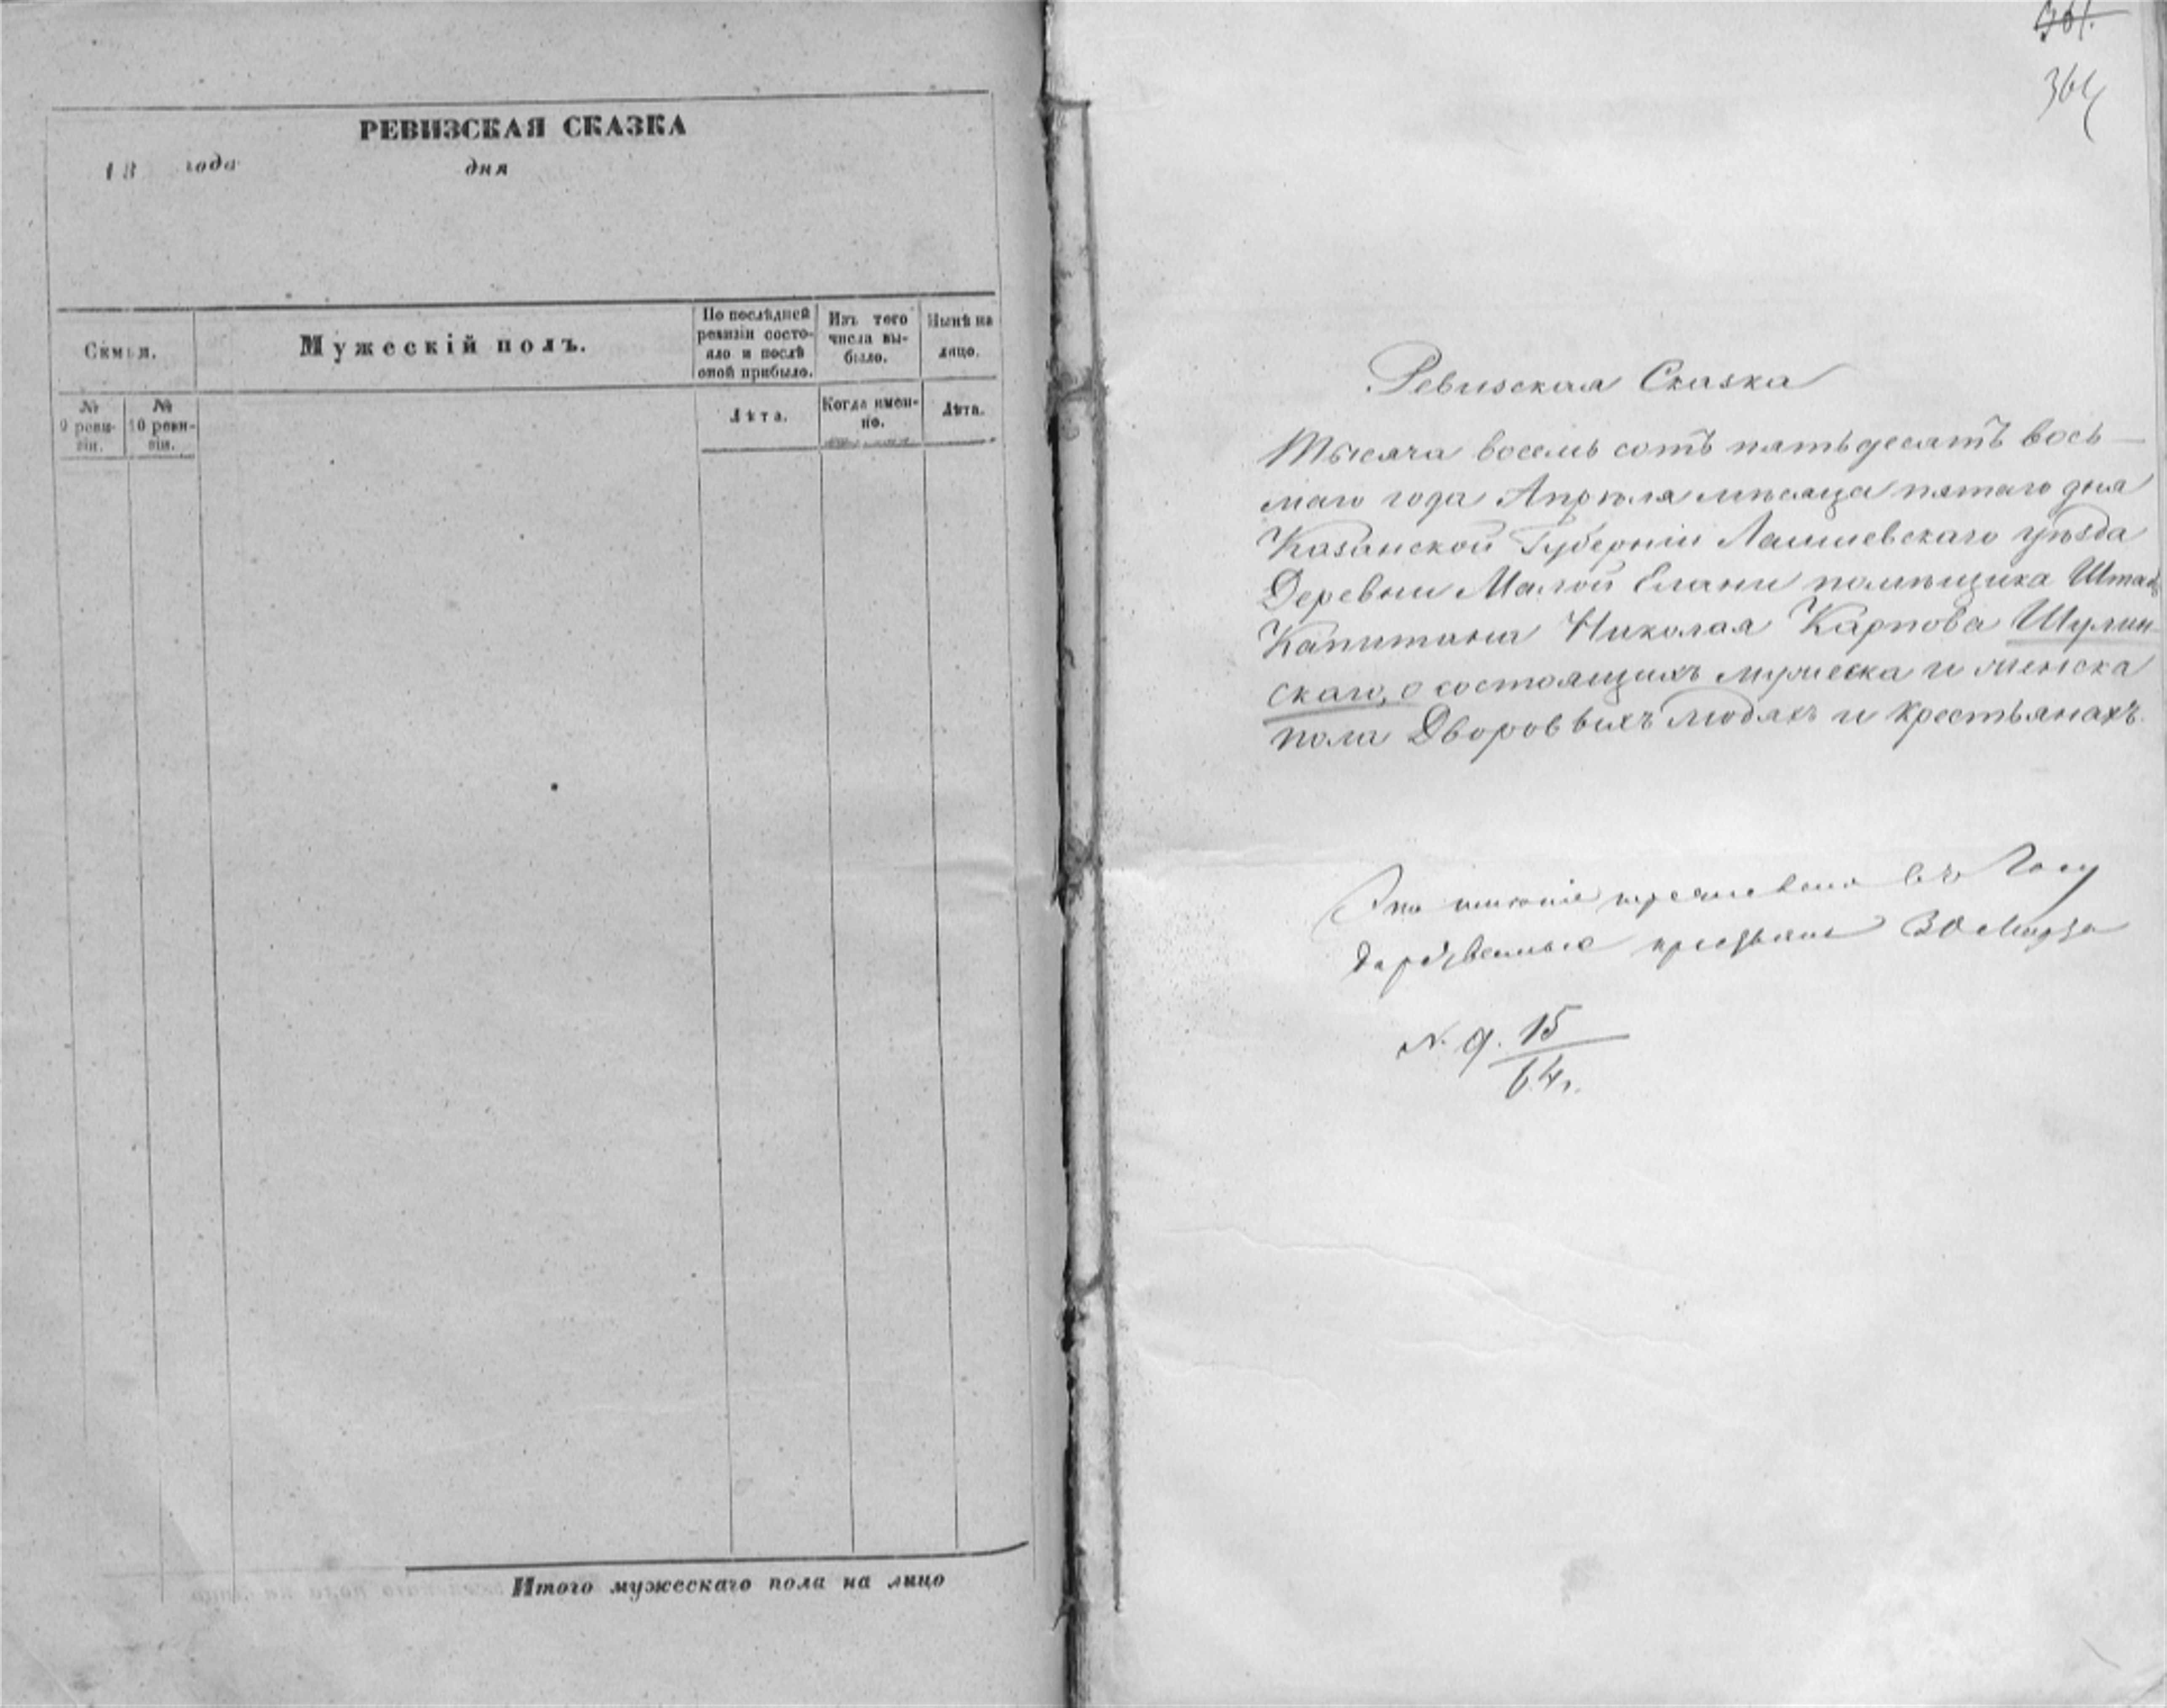 РЕВИЗСКАЯ СКАЗКА
18 года дня
Семья.
Мужескій полъ.
По послѣдней ревизіи состо-
яло и послѣ
оной прибыло.
Изъ того
числа вы-
было.
Нынѣ на
лицо.
№
9 реви-
зіи.
№
10 реви-
зіи.
Лѣта.
Когда имен-
но.
Лѣта.
Итого мужескаго пола на лицо
361.
Ревизская Сказка
Тысяча восемь сотъ пятьдесятъ вось—
маго года Апрѣля мѣсяца пятаго дня
Казанской Губерніи Лаишевскаго уѣзда
Деревни Малой Елани помѣщика Штабъ
Капитана Николая Карпова Шулин-
скаго, о состоящихъ мужеска и женска
пола Дворовыхъ людяхъ и крестьянахъ.
Это имѣніе перечислено въ Госу
дарственные крестьяне 30 Марта
№ д. 15
64 г.